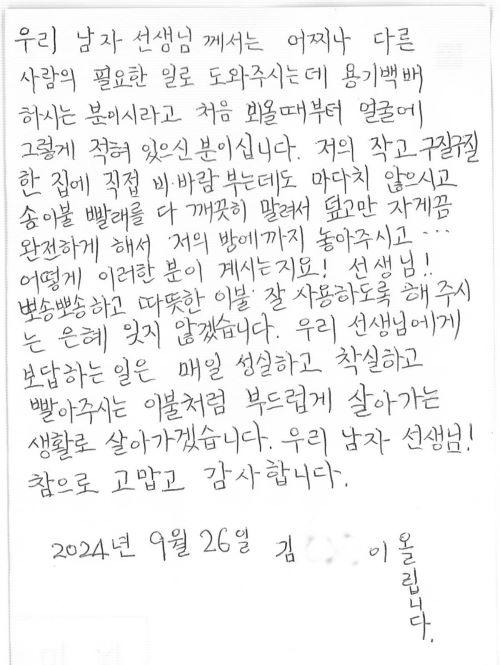 우리 남자 선생님께서는 어찌나 다른
사람의 필요한 일로 도와주시는데 용기백배
하시는 분이시라고 처음 뵈올때부터 얼굴에
그렇게 적혀 있으신 분이십니다. 저의 작고 구질구질
한 집에 직접 비·바람 부는데도 마다치 않으시고
솜이불 빨래를 다 깨끗히 말려서 덮고만 자게끔
완전하게 해서 저의 방에까지 놓아주시고 ····
어떻게 이러한 분이 계시는지요! 선생님!!
뽀송뽀송하고 따뜻한 이불 잘 사용하도록 해 주시
는 은혜 잊지 않겠습니다. 우리 선생님에게
보답하는 일은 매일 성실하고 착실하고
빨아주시는 이불처럼 부드럽게 살아가는
생활로 살아가겠습니다. 우리 남자 선생님!
참으로 고맙고 감사합니다.
2024년 9월 26일 김 이 올립니다.